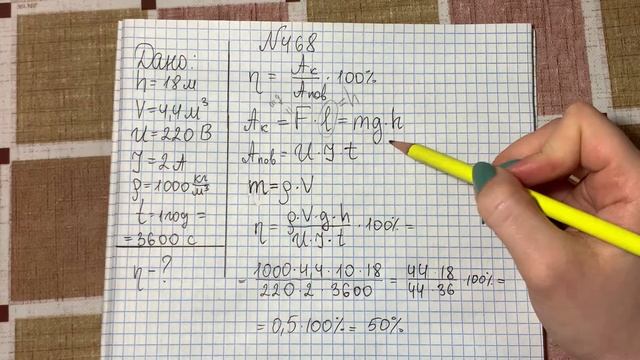 N468
Дано:
h = 18 м
V = 4,4 м³
U = 220 В
J = 2 А
ρ = 1000 кг/м³
t = 1 год =
= 3600 с
η - ?
η = Aк/Aпов · 100%
Aк = F · l = mg·h
mg = h
Aпов = U · J t
m = ρ · V
η = ρ·V·g·h/U·J·t · 100% =
= 1000·4,4·10·18/220·2·3600 = 44·18/44·36 · 100% =
= 0,5·100% = 50%